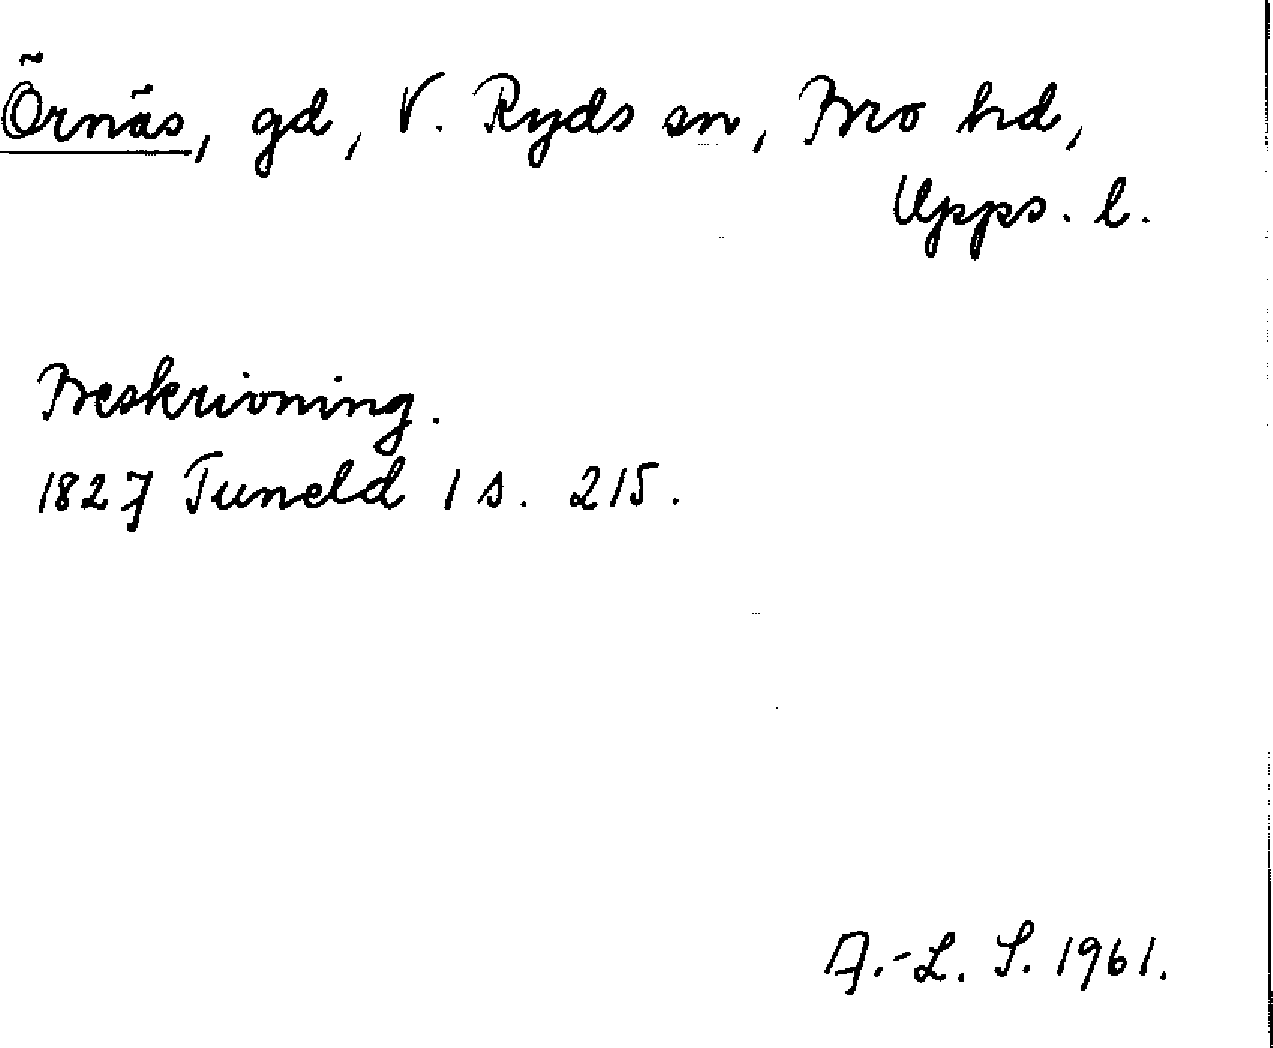 Örnäs, gd, V. Ryds sn, Bro hd,
Upps. l.
Beskrivning.
1827 Tuneld 1 s. 215.
A.-L. S. 1961.